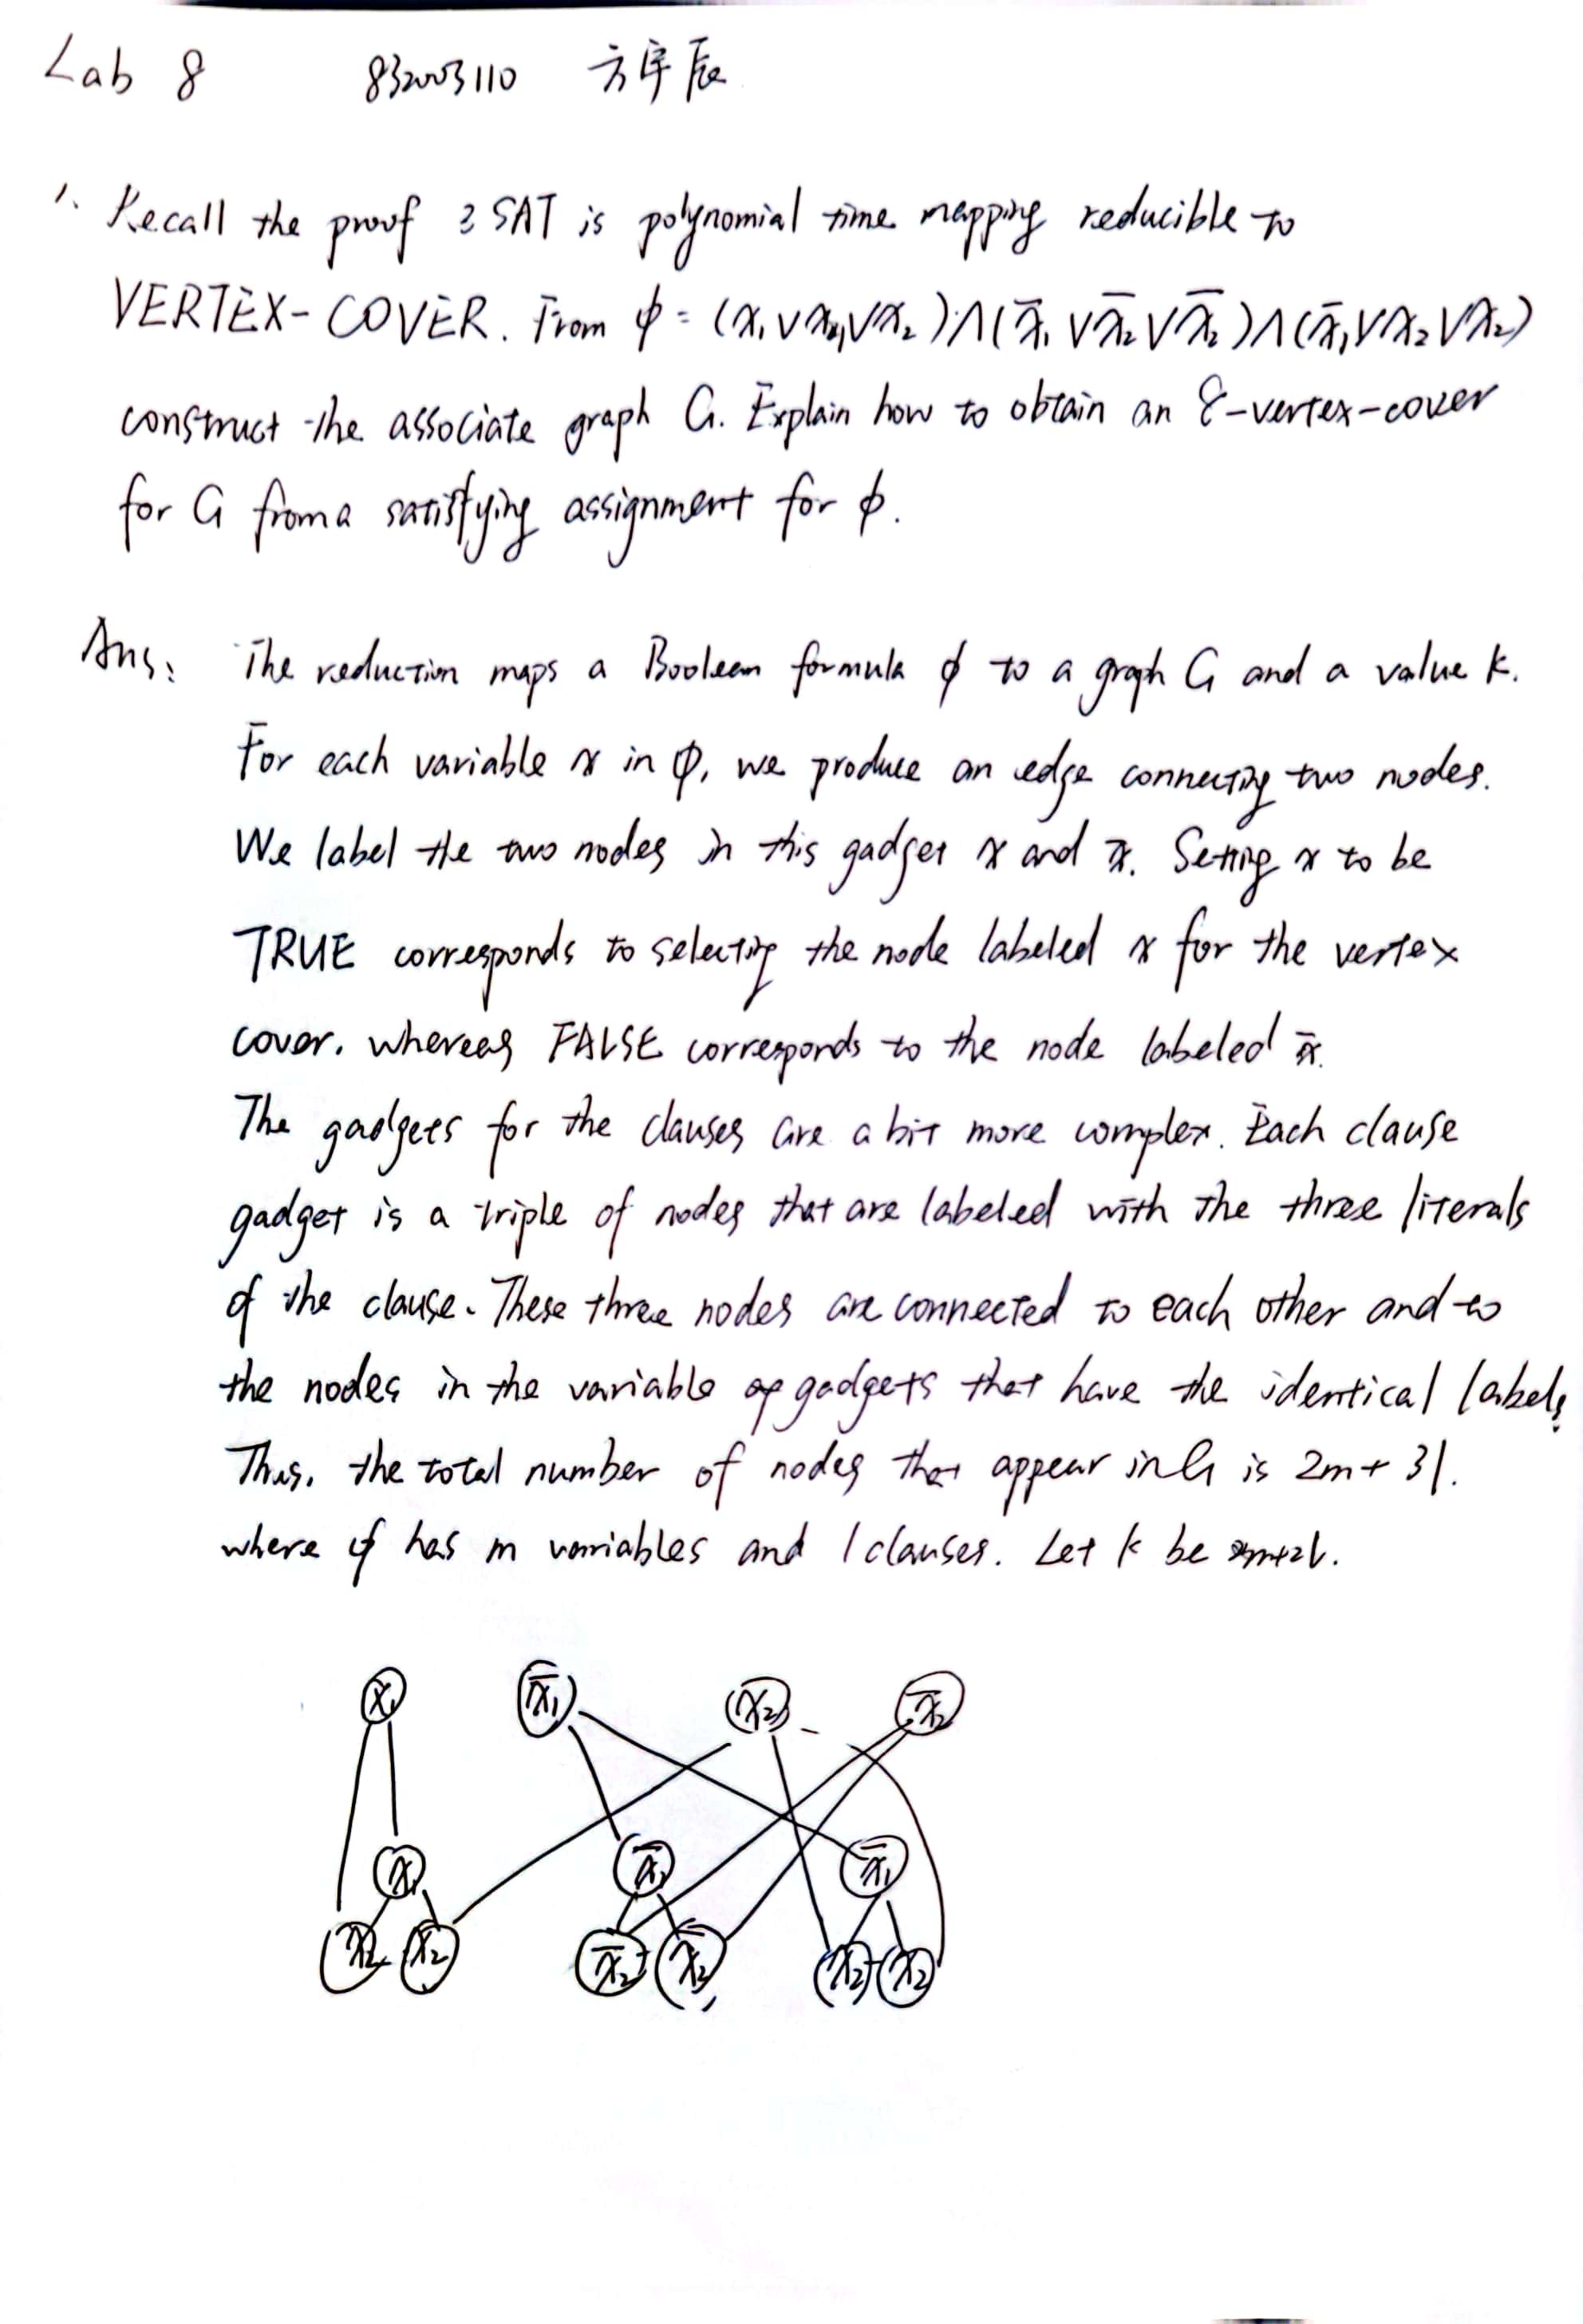 Lab 8 832003110 方宇辰
1. Recall the proof 3SAT is polynomial time mapping reducible to
VERTEX-COVER. From φ = (x₁∨x₁∨x₂)∧(x̄₁∨x̄₂∨x̄₂)∧(x̄₁∨x₂∨x₂)
construct the associate graph G. Explain how to obtain an 8-vertex-cover
for G from a satisfying assignment for φ.
Ans: The reduction maps a Boolean formula φ to a graph G and a value k.
For each variable x in φ, we produce an edge connecting two nodes.
We label the two nodes in this gadget x and x̄. Setting x to be
TRUE corresponds to selecting the node labeled x for the vertex
cover, whereas FALSE corresponds to the node labeled x̄.
The gadgets for the clauses are a bit more complex. Each clause
gadget is a triple of nodes that are labeled with the three literals
of the clause. These three nodes are connected to each other and to
the nodes in the variable gadgets that have the identical labels.
Thus, the total number of nodes that appear in G is 2m + 3l.
where φ has m variables and l clauses. Let k be m+2l.
x₁ x̄₁ x₂ x̄₂
x₁ x̄₁ x̄₁
x₂ x̄₂ x̄₂ x₂ x₂